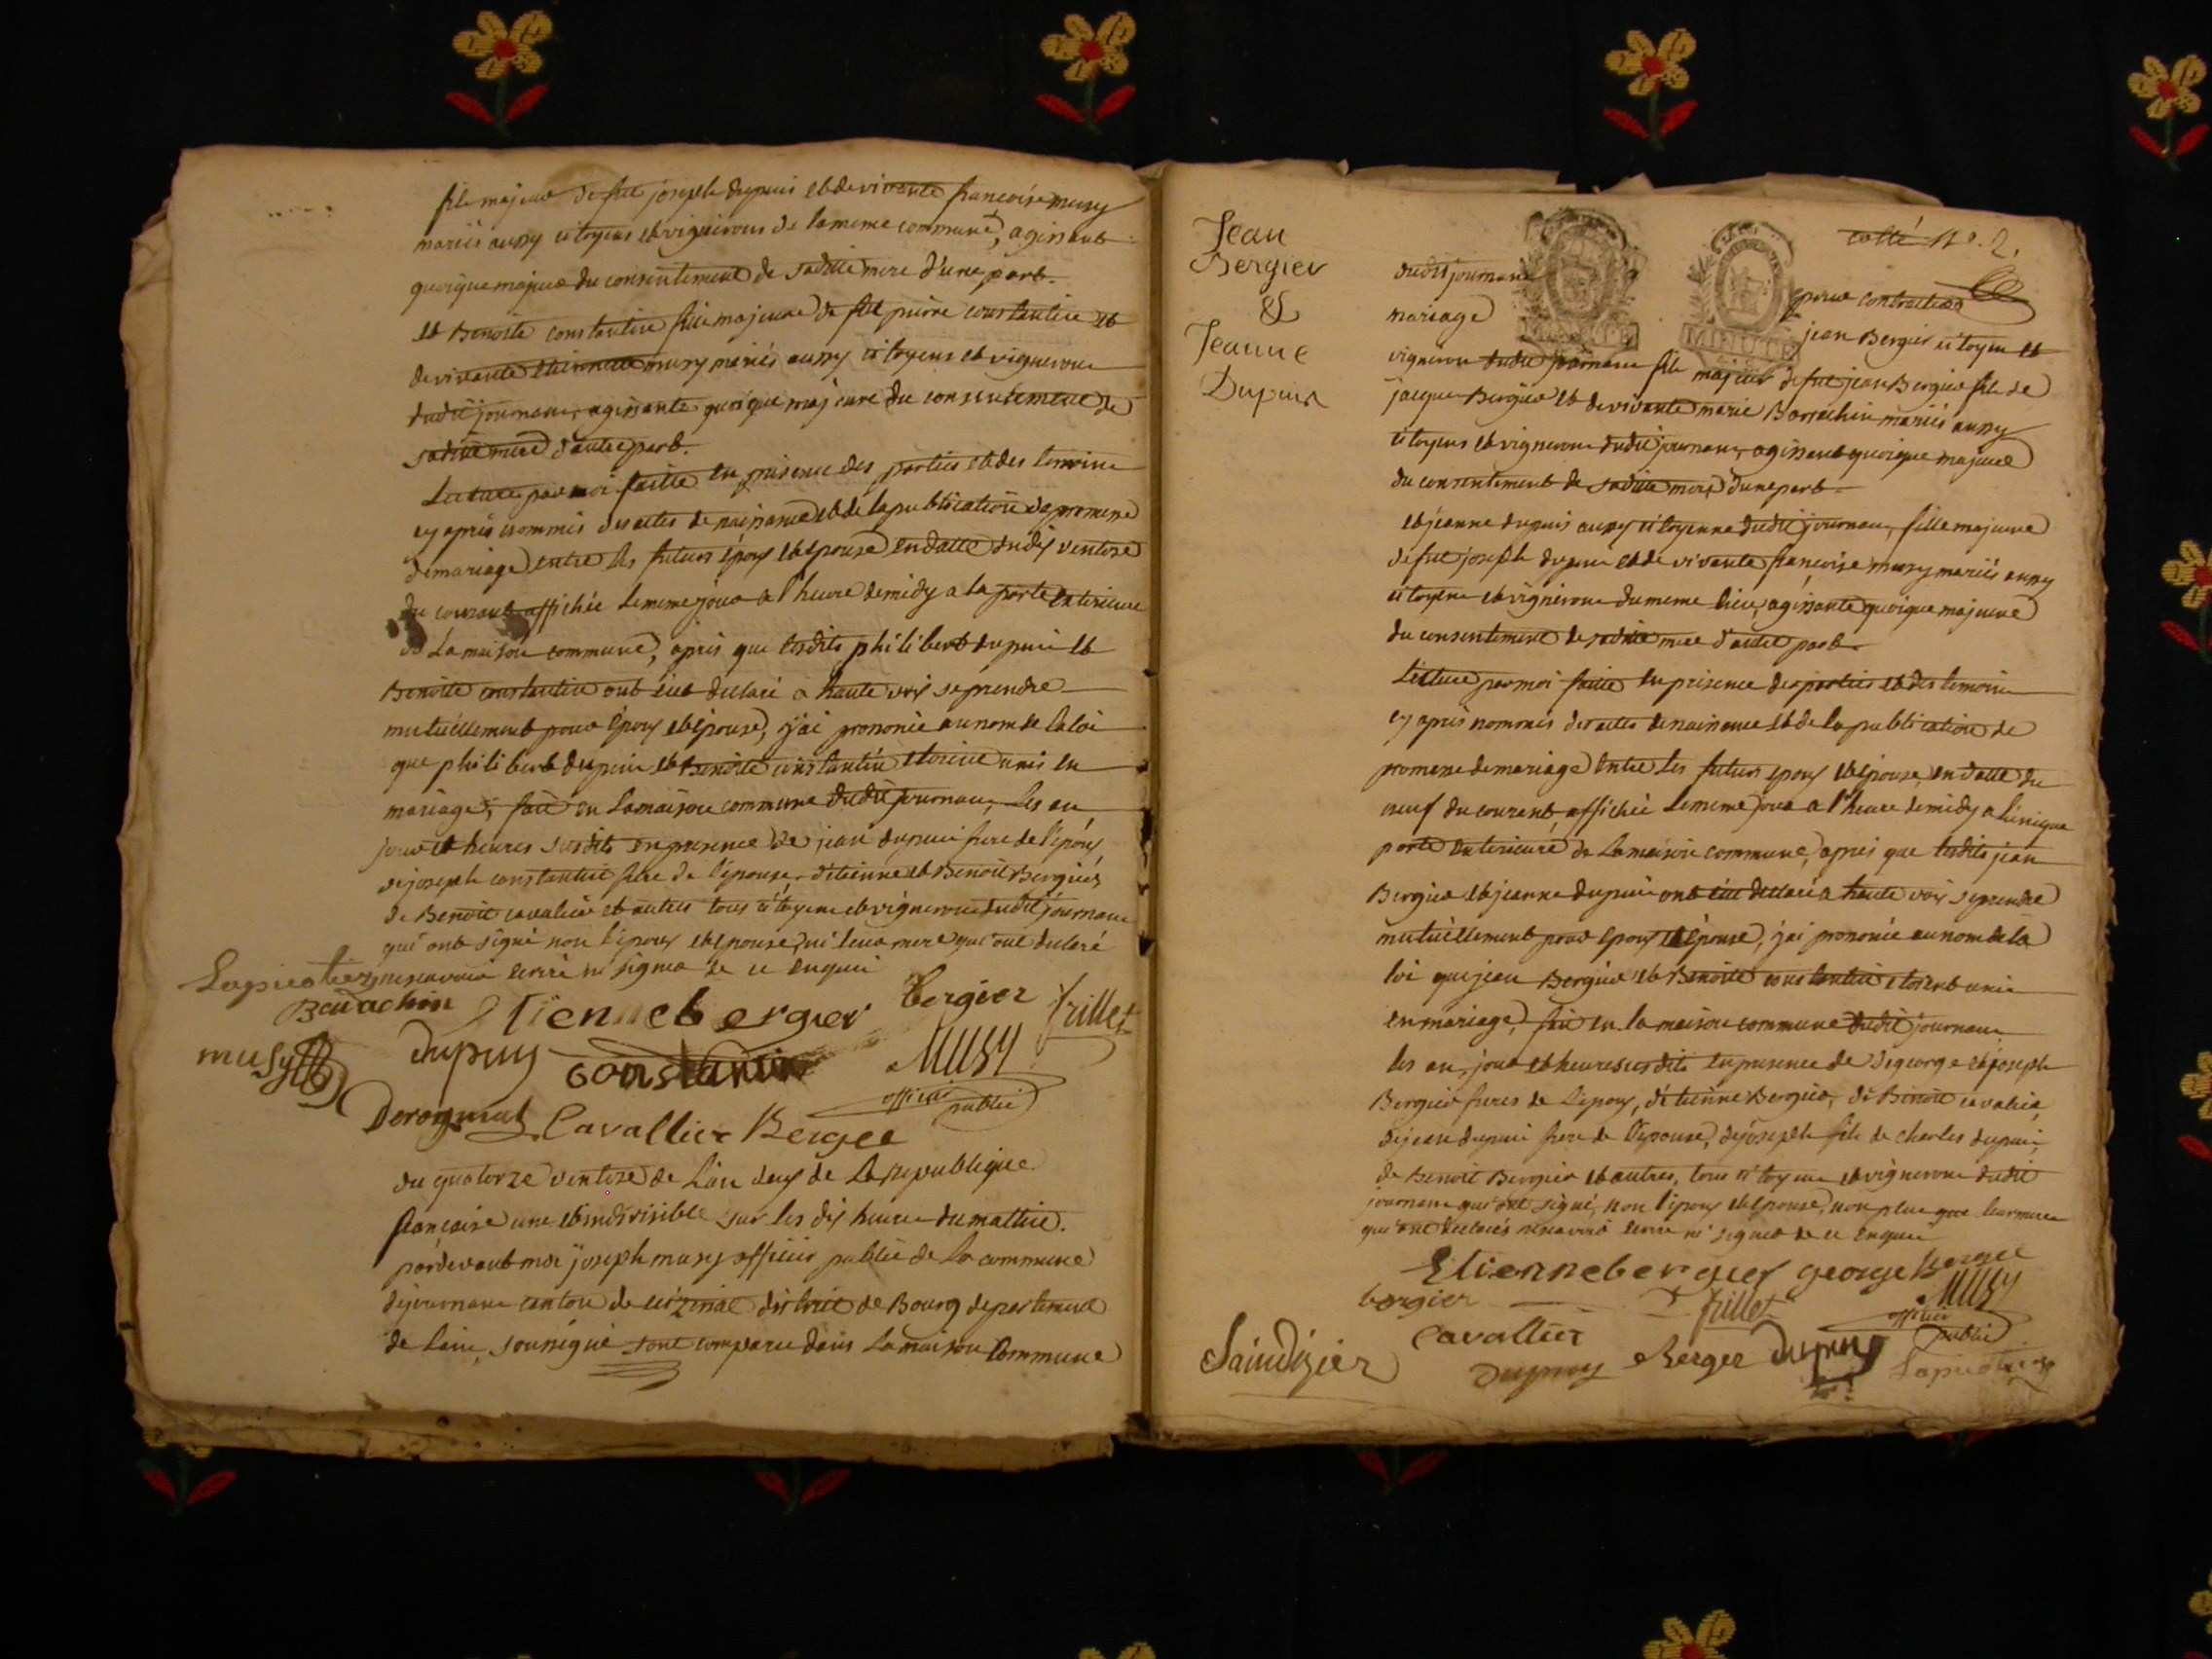 fils majeur de feu joseph dupuis et de vivante francoise musy
mariés aussy citoyens et vignerons de la meme commune, agissant
quoique majeur du consentement de sadite mere d'une part.
et Benoite constantin fille majeure de feu pierre constantin et
de vivante etiennette musy mariés aussy citoyens et vignerons
dudit journans, agissante quoique majeure du consentement de
sadite mere d'autre part.
Lecture par moi faitte en presence des parties et des temoins
cy apres nommés des actes de naissance et de la publication de promesse
de mariage entre les futurs époux et épouse en datte du dix ventose
du courant affichée le meme jour a l'heure de midy a la porte exterieure
de La maison commune, apres que lesdits philibert dupuis et
Benoite constantin ont eut declaré a haute voix se prendre
mutuellement pour époux et épouse, j'ai prononcé au nom de la loi
que philibert dupuis et benoite constantin etoient unis en
mariage, fait en La maison commune dudit journans, les an
jour et heures susdits en presence de jean dupuis frere de l'époux
de joseph constantin frere de l'epouse, d'etienne et Benoit Bergier
de Benoit cavalier et autres tous citoyens et vignerons dudit journans
qui ont signé non l'époux et épouse, ni leur mere qui ont declaré
ne savoir écrire ni signer de ce enquis
Lapierre
Etienne bergier bergier frillet
musy dupuy constantin Musy
officier public
Cavallier Berger
du quatorze ventose de L'an deux de La republique
française une et indivisible sur les dix heures du mattin.
pardevant moi joseph musy officier public de la commune
de journans canton de ceizeriat district de Bourg departement
de L'ain, soussigné sont comparu dans La maison Commune
Jean
Bergier
&
Jeanne
Dupuis
cotté N°. 2.
dudit journans pour contracter
mariage jean Bergier citoyen et
MINUTE
vigneron dudit journans fils majeur de feu jean Bergier fils de
jacque Bergier et de vivante marie Borrachin mariés aussy
citoyens et vignerons dudit journans, agissant quoique majeur
du consentement de sadite mere, d'une part.
et jeanne dupuis aussy citoyenne dudit journans, fille majeure
de feu joseph dupuis et de vivante françoise musy mariés aussy
citoyens et vignerons du meme lieu, agissante quoique majeure
du consentement de sadite mere d'autre part.
Lecture par moi faitte en presence des parties et des temoins
cy apres nommés des actes de naissance et de la publication de
promesse de mariage entre Les futurs epoux et épouse, en datte du
neuf du courant affichée Le meme jour a l'heure de midy a l'unique
porte exterieure de La maison commune, apres que lesdits jean
Bergier et jeanne dupuis ont eut declaré a haute voix se prendre
mutuellement pour epoux et épouse, j'ai prononcé au nom de la
loi que jean Bergier et Benoite constantin etoient unis
en mariage, fait en la maison commune dudit journans
les an, jour et heures susdits en presence de george et joseph
Bergier freres de l'epoux, d'etienne Bergier, de Benoit cavalier
de jean dupuis frere de l'épouse, de joseph fils de charles dupuis,
de Benoit Bergier et autres, tous citoyens et vignerons dudit
journans qui ont signé, non l'époux et épouse, non plus que leur mere
qui ont declarés ne savoir écrire ni signer de ce enquis
Etienne bergier george Berger
bergier frillet Musy
officier public
Saindizier Cavallier
Dupuy Berger Dupuy